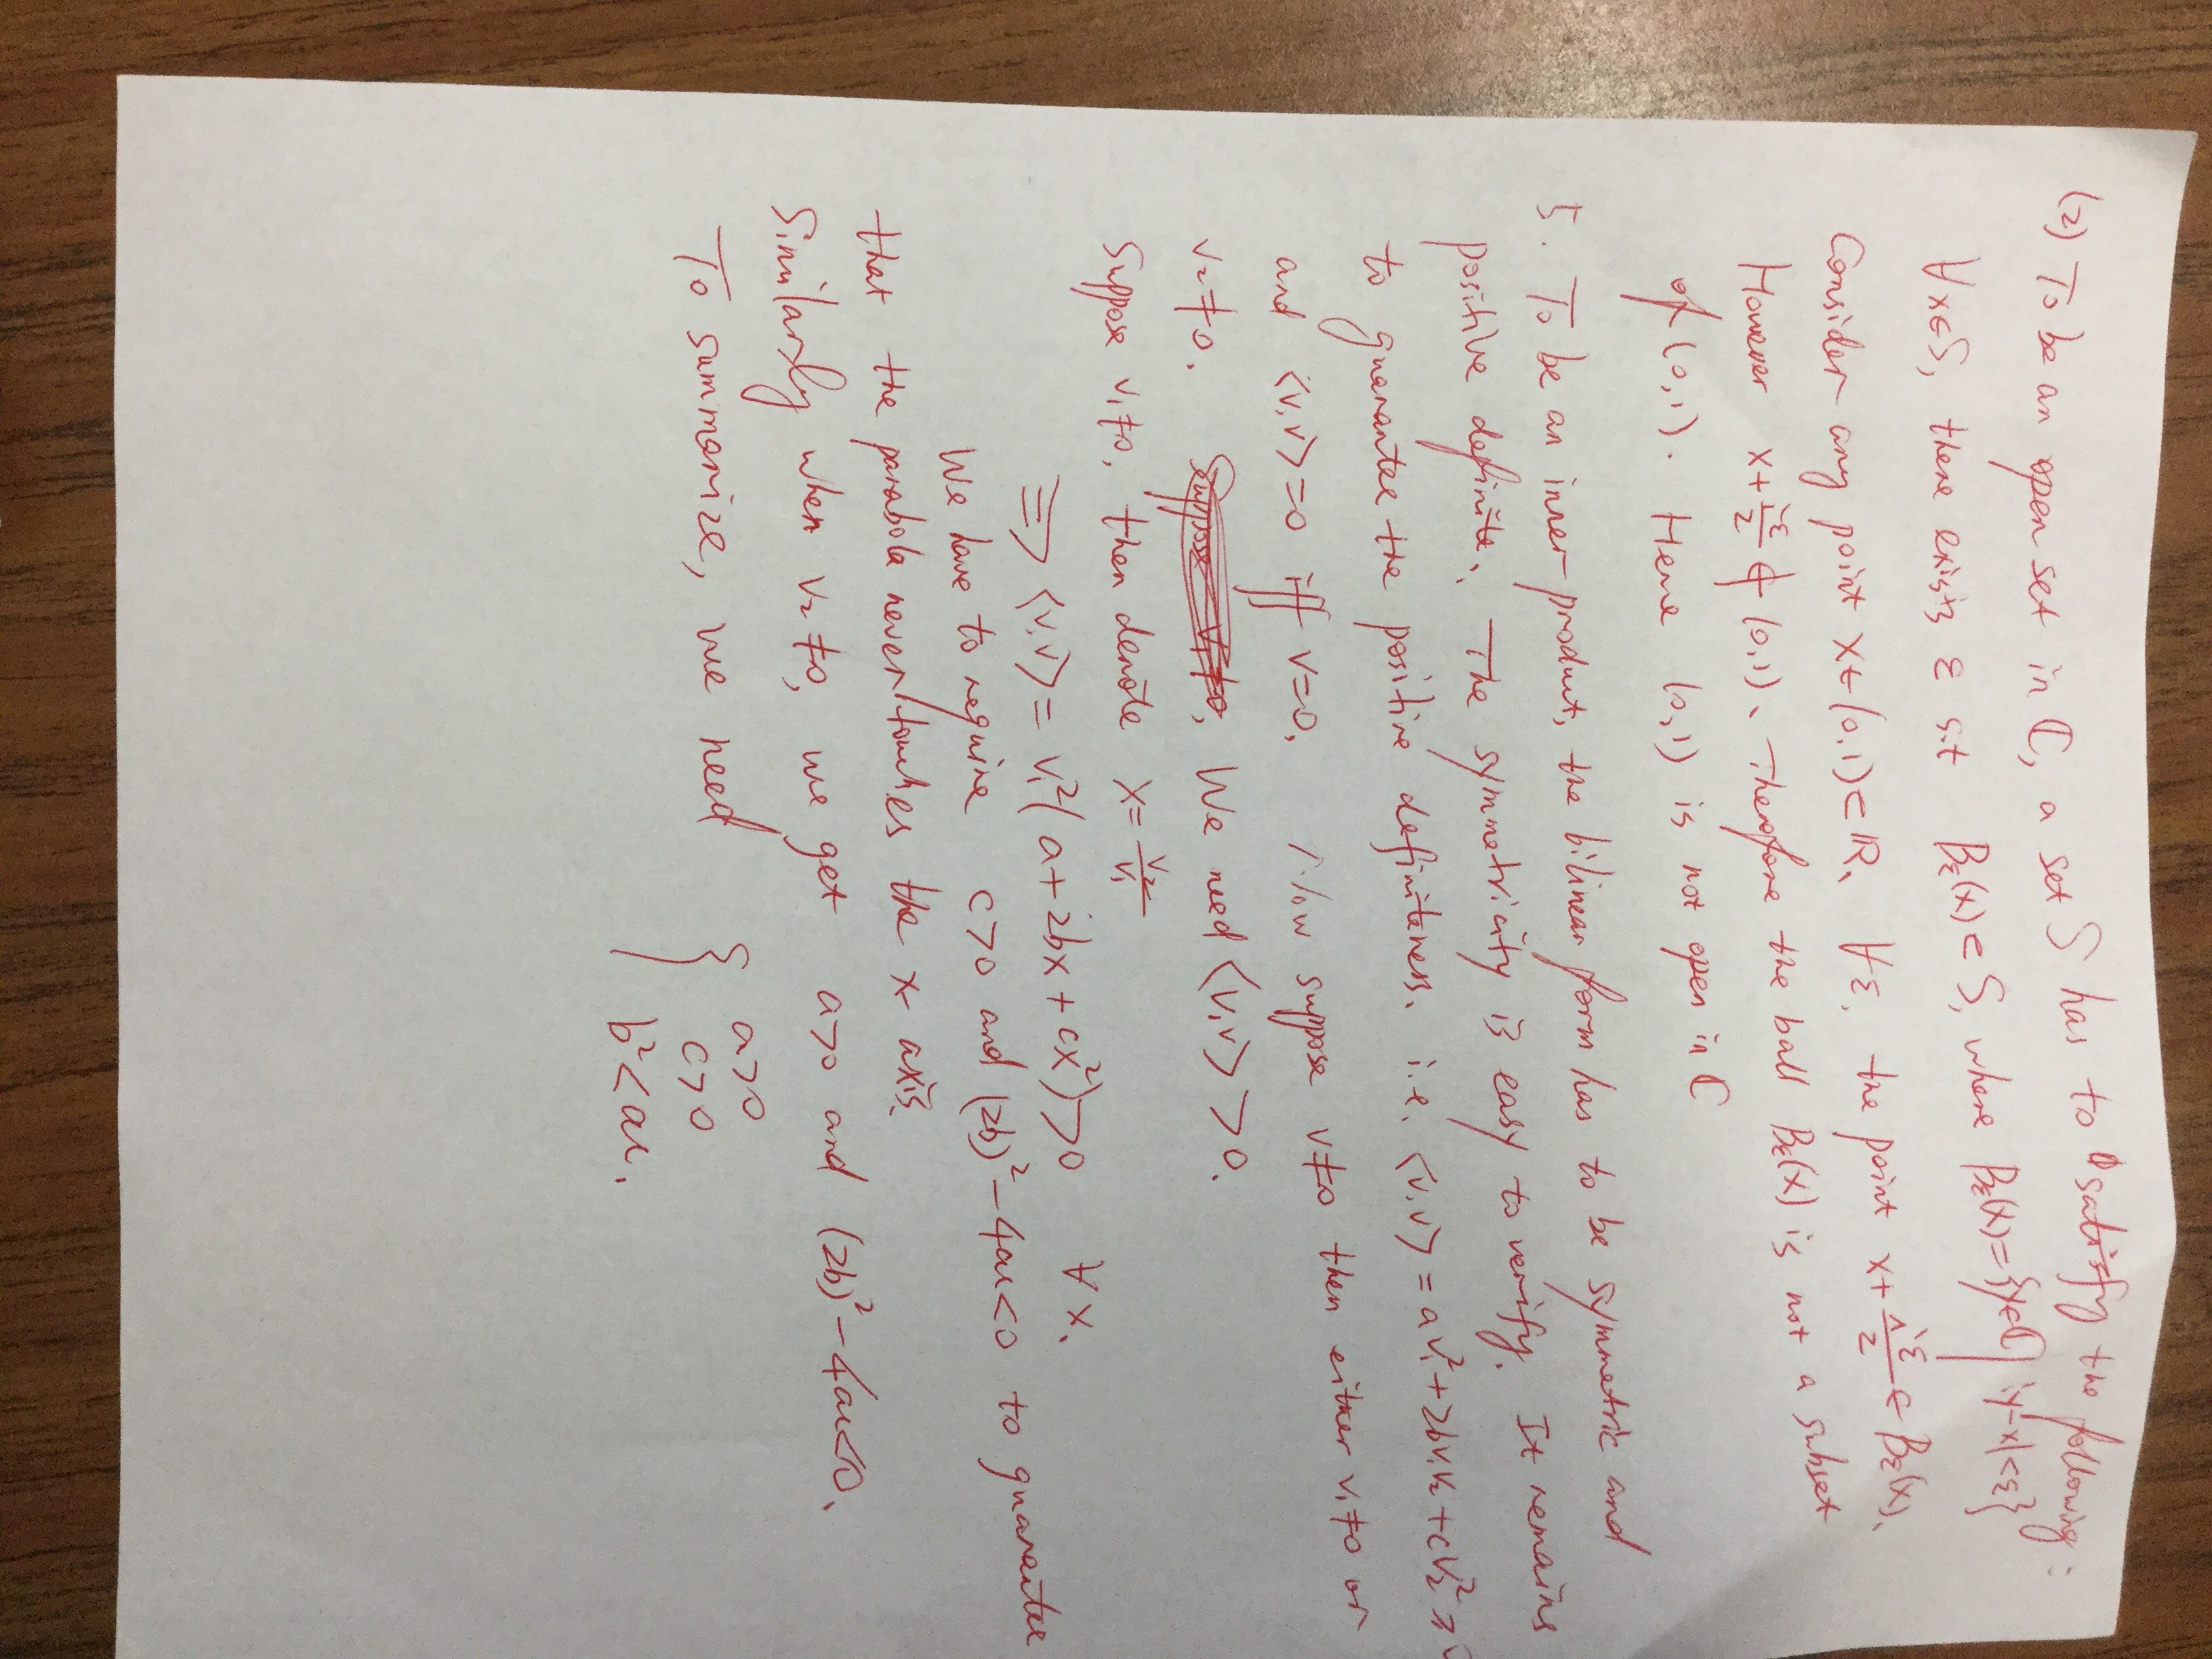 (2) To be an open set in ℂ, a set S has to satisfy the following:
∀x∈S, there exists ε s.t Bε(x)⊂S, where Bε(x)={y∈ℂ| |y-x|<ε}
Consider any point x∈(0,1)⊂ℝ, ∀ε, the point x+iε/2 ∈ Bε(x).
However x+iε/2 ∉ (0,1). Therefore the ball Bε(x) is not a subset
of (0,1). Hence (0,1) is not open in ℂ
5. To be an inner product, the bilinear form has to be symmetric and
positive definite. The symmetricity is easy to verify. It remains
to guarantee the positive definiteness. i.e. <v,v> = av₁²+2bv₁v₂+cv₂² ≥
and <v,v>=0 iff v=0. Now suppose v≠0 then either v₁≠0 or
v₂≠0. Suppose v₁≠0, We need <v,v> >0.
Suppose v₁≠0, then denote x=v₂/v₁
⇒ <v,v> = v₁²(a+2bx+cx²)>0 ∀x.
We have to require c>0 and (2b)²-4ac<0 to guarantee
that the parabola never touches the x axis.
Similarly when v₂≠0, we get a>0 and (2b)²-4ac<0.
To summarize, we need { a>0
c>0
b²<ac.